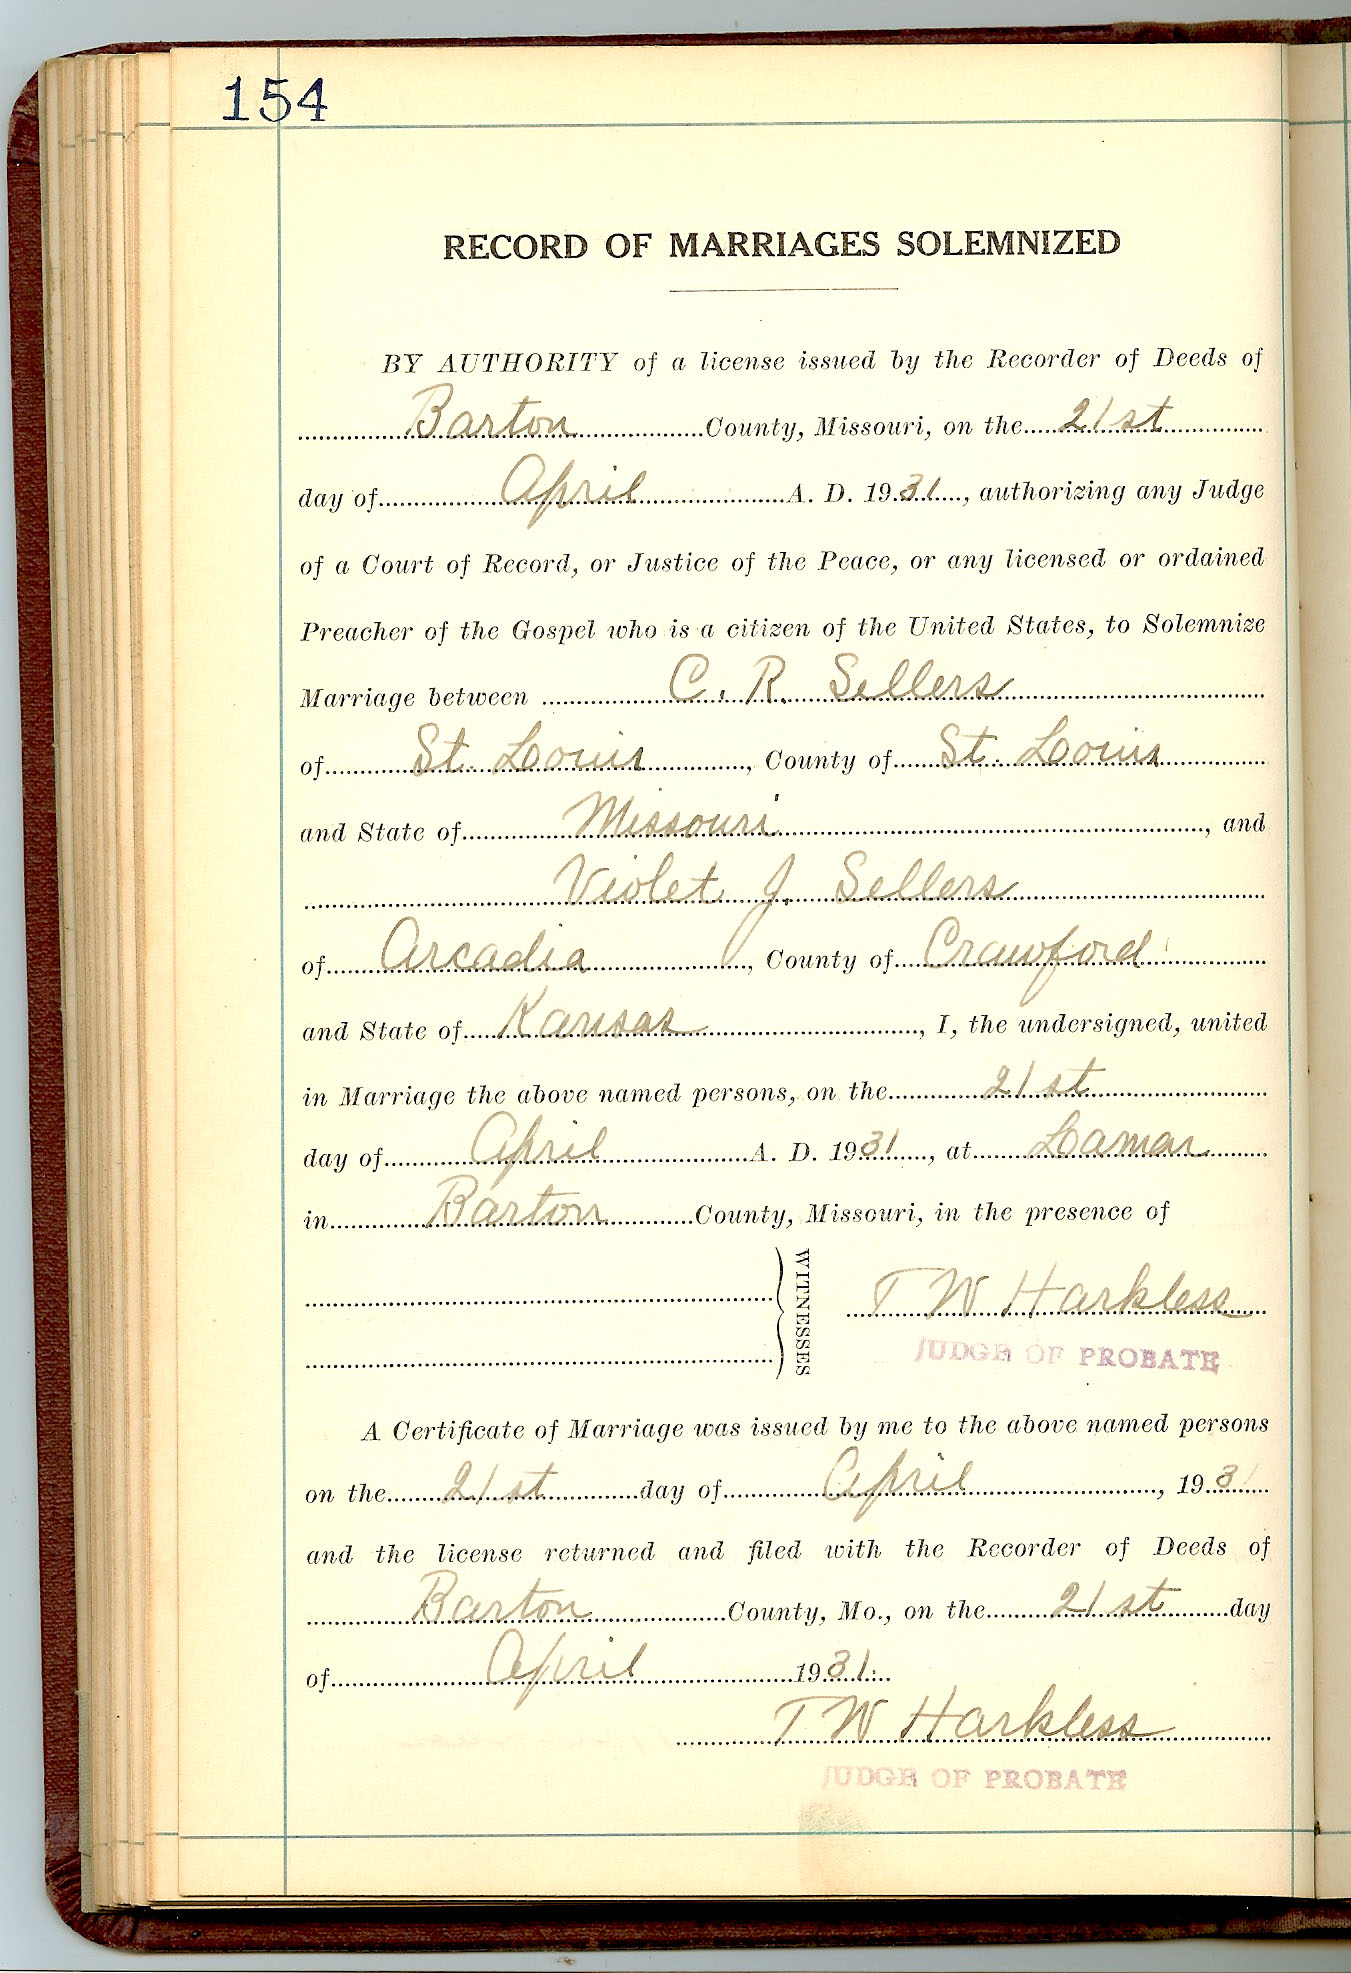 154
RECORD OF MARRIAGES SOLEMNIZED
BY AUTHORITY of a license issued by the Recorder of Deeds of
Barton County, Missouri, on the 21st
day of April A. D. 1931, authorizing any Judge
of a Court of Record, or Justice of the Peace, or any licensed or ordained
Preacher of the Gospel who is a citizen of the United States, to Solemnize
Marriage between C. R. Sellers
of St. Louis, County of St. Louis
and State of Missouri, and
Violet J. Sellers
of Arcadia, County of Crawford
and State of Kansas, I, the undersigned, united
in Marriage the above named persons, on the 21st
day of April A. D. 1931, at Lamar
in Barton County, Missouri, in the presence of
WITNESSES
T W Harkless
JUDGE OF PROBATE
A Certificate of Marriage was issued by me to the above named persons
on the 21st day of April, 1931
and the license returned and filed with the Recorder of Deeds of
Barton County, Mo., on the 21st day
of April 1931.
T W Harkless
JUDGE OF PROBATE